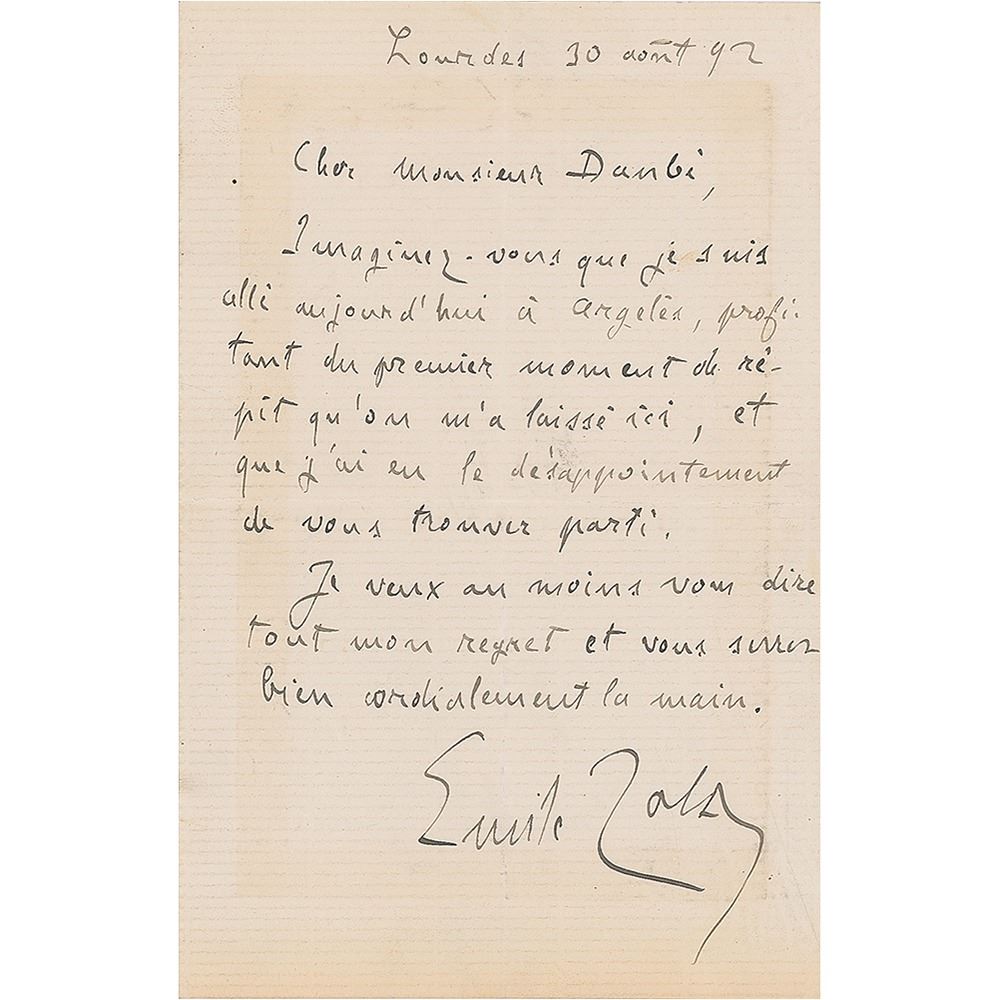 Lourdes 30 août 92
Cher monsieur Danbé,
Imaginez-vous que je suis
allé aujourd'hui à Argelès, profi-
tant du premier moment de ré-
pit qu'on m'a laissé ici, et
que j'ai eu le désappointement
de vous trouver parti.
Je veux au moins vous dire
tout mon regret et vous serrer
bien cordialement la main.
Emile Zola